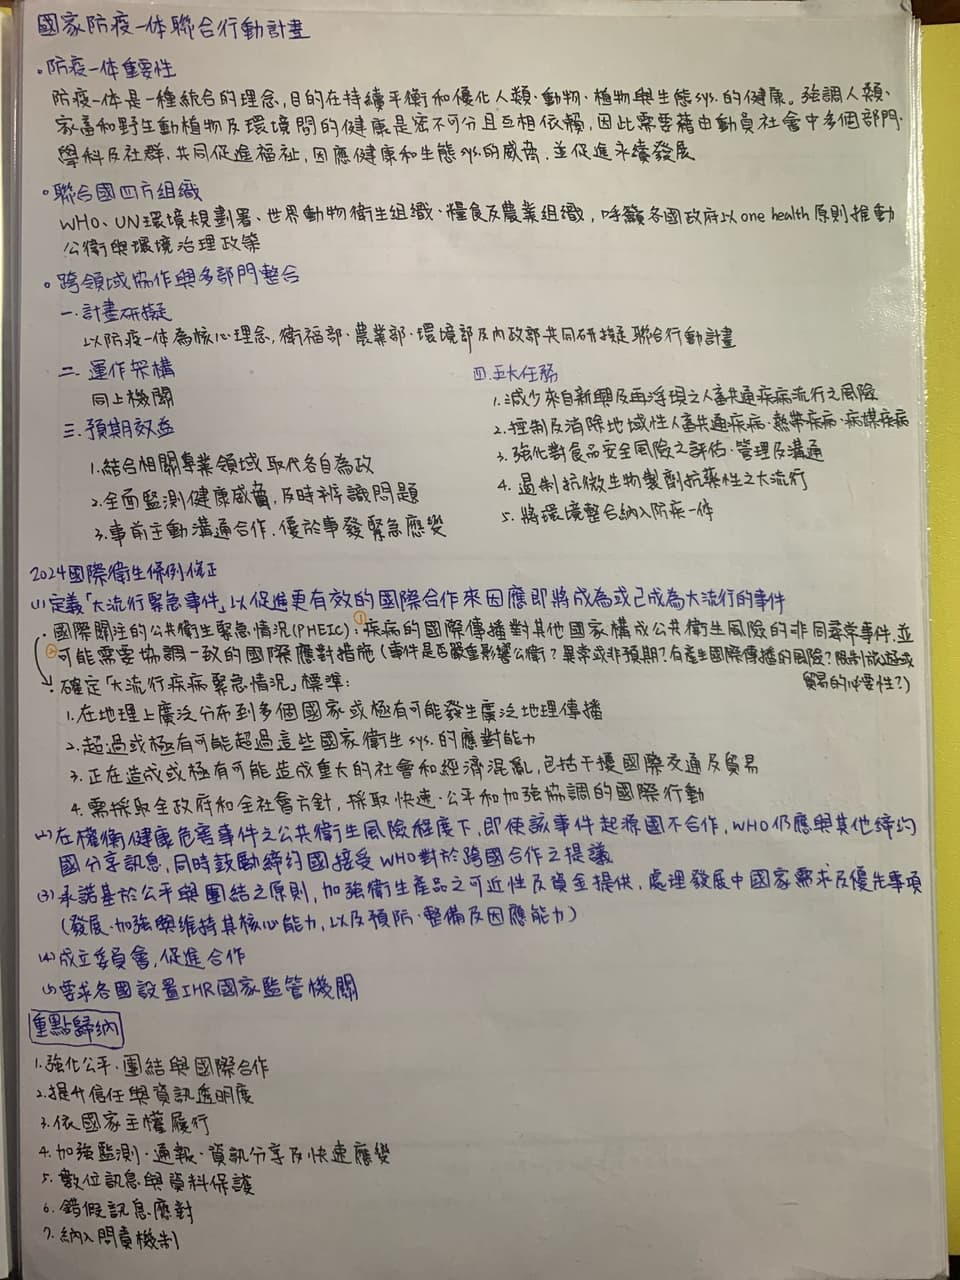 國家防疫一体聯合行動計畫
。防疫一体重要性
防疫一体是一種統合的理念,目的在持續平衡和優化人類、動物、植物與生態sys.的健康。強調人類、
家畜和野生動植物及環境間的健康是密不可分且互相依賴,因此需要藉由動員社會中多個部門、
學科及社群、共同促進福祉,因應健康和生態sys.的威脅,並促進永續發展
。聯合國四方組織
WHO、UN環境規劃署、世界動物衛生組織、糧食及農業組織,呼籲各國政府以one health原則推動
公衛與環境治理政策
。跨領域協作與多部門整合
一.計畫研擬
以防疫一体為核心理念,衛福部、農業部、環境部及內政部共同研擬聯合行動計畫
二.運作架構
同上機關
三.預期效益
1.結合相關專業領域取代各自為政
2.全面監測健康威脅,及時辨識問題
3.事前主動溝通合作、優於事發緊急應變
四.五大任務
1.減少來自新興及再浮現之人畜共通疾病流行之風險
2.控制及消除地域性人畜共通疾病、熱帶疾病、病媒疾病
3.強化對食品安全風險之評估、管理及溝通
4.遏制抗微生物製劑抗藥性之大流行
5.將環境整合納入防疾一体
2024國際衛生條例修正
(1)定義「大流行緊急事件」以促進更有效的國際合作來因應即將成為或已成為大流行的事件
・國際關注的公共衛生緊急情況(PHEIC):①疾病的國際傳播對其他國家構成公共衛生風險的非同尋常事件,並
②可能需要協調一致的國際應對措施(事件是否嚴重影響公衛?異常或非預期?有產生國際傳播的風險?限制旅遊或
貿易的必要性?)
・確定「大流行疾病緊急情況」標準:
1.在地理上廣泛分布到多個國家或極有可能發生廣泛地理傳播
2.超過或極有可能超過這些國家衛生sys.的應對能力
3.正在造成或極有可能造成重大的社會和經濟混亂,包括干擾國際交通及貿易
4.需採取全政府和全社會方針,採取快速、公平和加強協調的國際行動
(2)在權衡健康危害事件之公共衛生風險程度下,即使該事件起源國不合作,WHO仍應與其他締約
國分享訊息,同時鼓勵締約國接受WHO對於跨國合作之提議
(3)承諾基於公平與團結之原則,加強衛生產品之可近性及資金提供,處理發展中國家需求及優先事項
(發展、加強與維持其核心能力,以及預防、整備及因應能力)
(4)成立委員會,促進合作
(5)要求各國設置IHR國家監管機關
重點歸納
1.強化公平、團結與國際合作
2.提升信任與資訊透明度
3.依國家主權履行
4.加強監測、通報、資訊分享及快速應變
5.數位訊息與資料保護
6.錯假訊息應對
7.納入問責機制